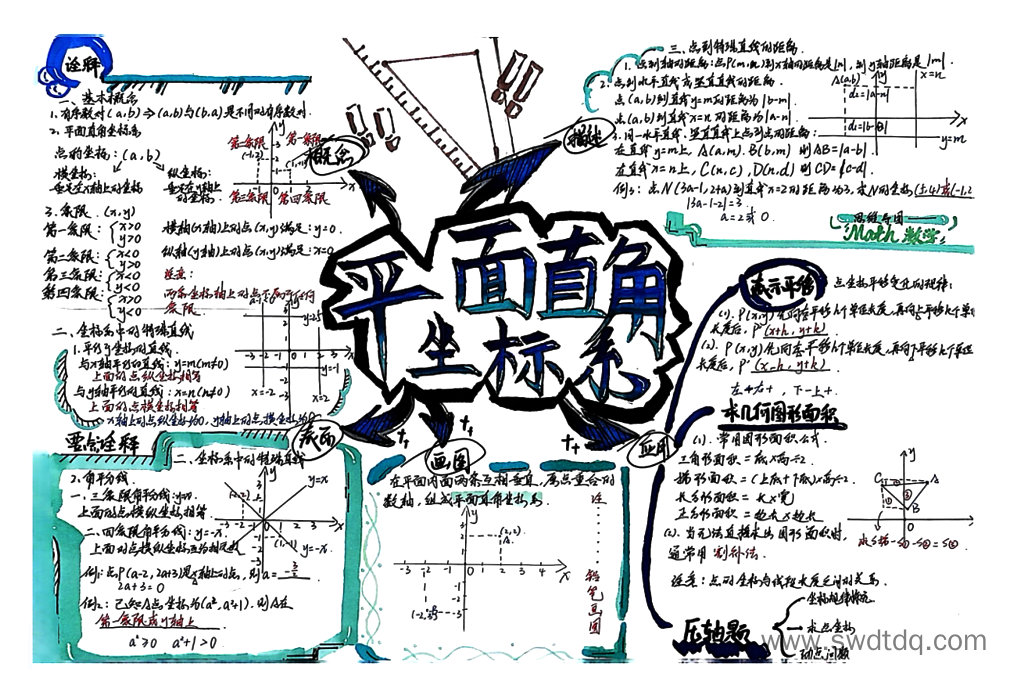 诠释
一、基本概念
1.有序数对(a,b)⇒(a,b)与(b,a)是不同的有序数对.
2.平面直角坐标系
点的坐标:(a,b)
横坐标:
垂足在x轴上的坐标
纵坐标:
垂足在y轴上
的坐标.
第二象限
第一象限
第三象限
第四象限
3.象限.(x,y)
第一象限:{x>0 y>0
第二象限:{x<0 y>0
第三象限:{x<0 y<0
第四象限:{x>0 y<0
横轴(x轴)上的点(x,y)满足:y=0.
纵轴(y轴)上的点(x,y)满足:x=0.
注意:
两条坐标轴上的点不属于任何
象限.
二、坐标系中的特殊直线
1.平行于坐标的直线.
与x轴平行的直线:y=m(m≠0)
上面的点纵坐标相等
与y轴平行的直线:x=n(n≠0)
上面的点横坐标相等
x轴上的点纵坐标为0,y轴上的点横坐标为0
x=-2
x=2
y=-1
概念
描述
平面直角
坐标系
底面
画图
应用
三、点到特殊直线的距离.
1.点到轴的距离:点P(m,n)到x轴的距离是|n|,到y轴距离是|m|.
2.点到水平直线、竖直直线的距离.
点(a,b)到直线y=m的距离为|b-m|.
点(a,b)到直线x=n的距离为|a-n|.
同一水平直线、竖直直线上点到点的距离:
在直线y=m上,A(a,m).B(b,m)则AB=|a-b|
在直线x=n上,C(n,c),D(n,d)则CD=|c-d|.
例:点N(3a-1,2+a)到直线x=2的距离为3,求N的坐标
|3a-1-2|=3
a=2或0.
A(a,b)
y
x=n
d₁=|a-n|
x
y=m
思维导图
Math 数学
表示平移
点坐标平移变化的规律:
(1).P(x,y)先向右平移h个单位长度,再向上平移k个单位
长度后,P'(x+h,y+k).
(2).P(x,y)先向左平移h个单位长度,再向下平移k个单位
长度后,P'(x-h,y+k).
左-右+,下-上+.
求几何图形面积
(1).常用图形面积公式.
三角形面积=底×高÷2.
梯形面积=(上底+下底)×高÷2.
长方形面积=长×宽
正方形面积=边长×边长
(2).当无法直接求出图形面积时,
通常用割补法.
注意:点的坐标与线段长度之间的关系.
y
C
A
B
0
x
压轴题
坐标规律情况
求点坐标
动点问题
要点诠释
二、坐标系中的特殊直线
2.角平分线.
一、三象限角平分线:y=x.
上面的点横纵坐标相等.
二、四象限角平分线:y=-x.
上面的点横纵坐标互为相反数
y=x
y=-x
例1:点P(a-2,2a+3)是x轴上的点,则a=-3/2
2a+3=0
例2:已知A点坐标为(a²,a²+1).则A在
第一象限或y轴上
a²≥0 a²+1>0
在平面内画两条互相垂直、原点重合的
数轴,组成平面直角坐标系.
y
(2,2)
A
-3 -2 -1 0 1 2 3 4 x
注......铅笔画图
www.swdtdq.com